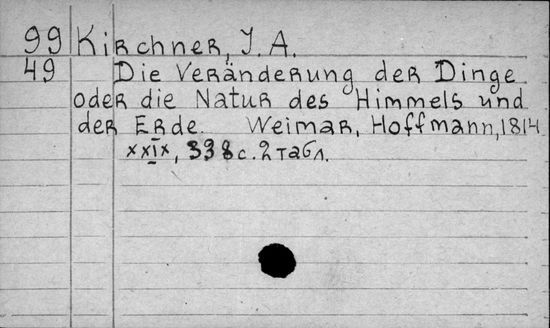 99 Kirchner, J. A.
49 Die Veränderung der Dinge
oder die Natur des Himmels und
der Erde. Weimar, Hoffmann, 1814
XXIX, 338 с. 2 табл.